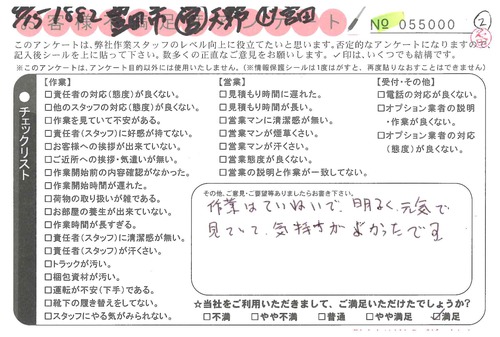 4/15 1882 豊田市 営 天野 作 吉田
お客様 満足 アンケート
No 055000
②
このアンケートは、弊社作業スタッフのレベル向上に役立てたいと思います。否定的なアンケートになりますので、
記入後シールを上に貼って下さい。数多くの正直なご意見をお願いします。✓印は、いくつでも結構です。
※このアンケートは、アンケート目的以外には使用いたしません。(※情報保護シールは1度はがすと、再度貼りなおすことはできません)
●チェックリスト
【作業】
□責任者の対応(態度)が良くない。
□他のスタッフの対応(態度)が良くない。
□作業を見ていて不安がある。
□責任者(スタッフ)に好感が持てない。
□お客様への挨拶が出来ていない。
□ご近所への挨拶・気遣いが無い。
□作業開始前の内容確認がなかった。
□作業開始時間が遅れた。
□荷物の取り扱いが雑である。
□お部屋の養生が出来ていない。
□作業時間が長すぎる。
□責任者(スタッフ)に清潔感が無い。
□責任者(スタッフ)が汗くさい。
□トラックが汚い。
□梱包資材が汚い。
□運転が不安(下手)である。
□靴下の履き替えをしてない。
□スタッフにやる気がみられない。
【営業】
□見積もり時間に遅れた。
□見積もり時間が長い。
□営業マンに清潔感が無い。
□営業マンが煙草くさい。
□営業マンが汗くさい。
□営業態度が良くない。
□営業の説明と作業が一致してない。
【受付・その他】
□電話の対応が良くない。
□オプション業者の説明
・作業が良くない。
□オプション業者の対応
(態度)が良くない。
その他、ご意見・ご要望等ありましたらお書き下さい。
作業はていねいで、明るく、元気で
見ていて、気持ちがよかったです
☆当社をご利用いただきまして、ご満足いただけたでしょうか?
□不満 □やや不満 □普通 □やや満足 ☑満足